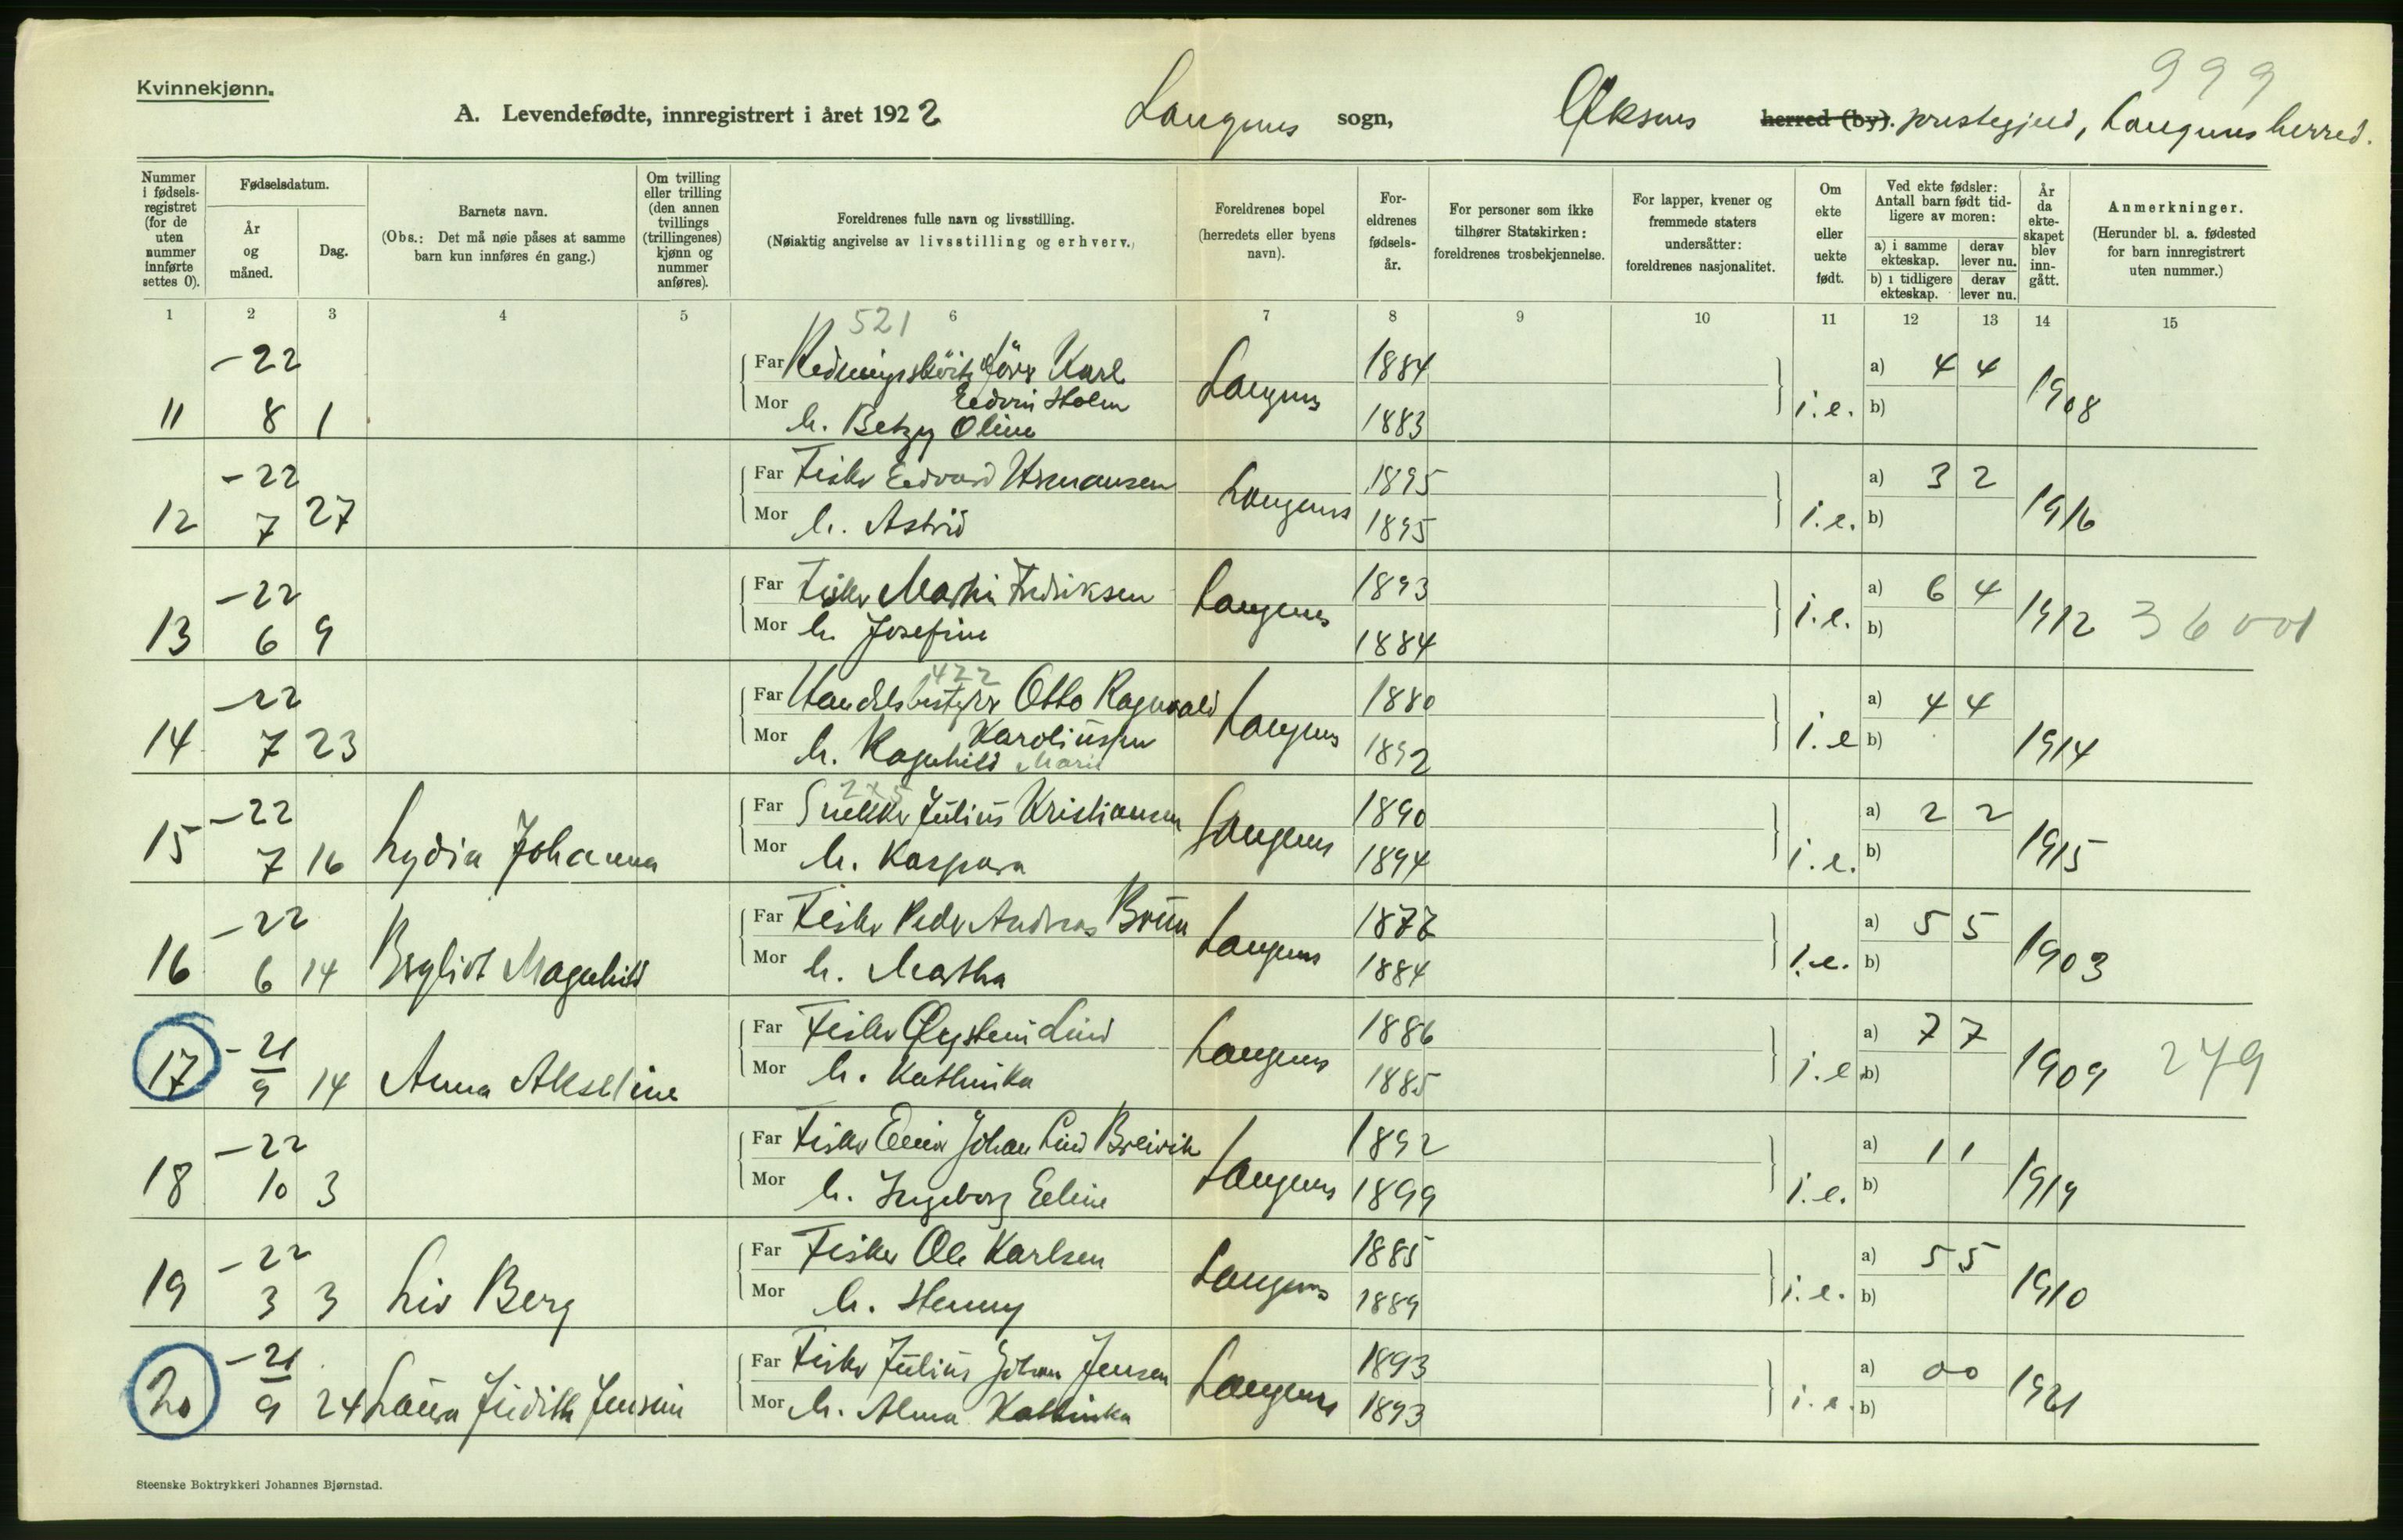 999
Kvinnekjønn.
A. Levendefødte, innregistrert i året 1922 Langenes sogn, Øksnes herred (by). prestegjeld, Langenes herred.
Nummer i fødselsregistret (for de uten nummer innførte settes 0).
Fødselsdatum.
År og måned.
Dag.
Barnets navn.
(Obs.: Det må nøie påses at samme barn kun innføres én gang.)
Om tvilling eller trilling (den annen tvillings (trillingenes) kjønn og nummer anføres).
Foreldrenes fulle navn og livsstilling.
(Nøiaktig angivelse av livsstilling og erhverv.)
Foreldrenes bopel (herredets eller byens navn).
Foreldrenes fødselsår.
For personer som ikke tilhører Statskirken: foreldrenes trosbekjennelse.
For lapper, kvener og fremmede staters undersåtter: foreldrenes nasjonalitet.
Om ekte eller uekte født.
Ved ekte fødsler: Antall barn født tidligere av moren:
a) i samme ekteskap. derav lever nu.
b) i tidligere ekteskap. derav lever nu.
År da ekteskapet blev inngått.
Anmerkninger.
(Herunder bl. a. fødested for barn innregistrert uten nummer.)
1 2 3 4 5 6 7 8 9 10 11 12 13 14 15
521
-22 Far Redningsskøitefører Karl Edvin Holm Langenes 1884 a) 4 4 1908
11 8 1 Mor h. Betzy Oline 1883 i.e. b)
-22 Far Fisker Edvard Hermansen Langenes 1895 a) 3 2 1916
12 7 27 Mor h. Astrid 1895 i.e. b)
-22 Far Fisker Martin Fredriksen Langenes 1893 a) 6 4 1912 36001
13 6 9 Mor h. Josefine 1884 i.e. b)
422
-22 Far Handelsbestyrer Otto Ragnvald Karoliussen Langenes 1880 a) 4 4 1914
14 7 23 Mor h. Ragnhild Marie 1892 i.e b)
-22 Far Snekker Julius Kristiansen Langenes 1890 a) 2 2 1915
15 7 16 Lydia Johanna Mor h. Kaspara 1894 i.e. b)
-22 Far Fisker Peder Andreas Bruun Langenes 1877 a) 5 5 1903
16 6 14 Bergliot Magnhild Mor h. Martha 1884 i.e. b)
-21 Far Fisker Øystein Lind Langenes 1886 a) 7 7 1909 279
17 9 14 Anna Akseline Mor h. Kathinka 1885 i.e b)
-22 Far Fisker Einar Johan Lind Breivik Langenes 1892 a) 1 1 1919
18 10 3 Mor h. Ingeborg Eline 1899 i.e. b)
-22 Far Fisker Ole Karlsen Langenes 1885 a) 5 5 1910
19 3 3 Liv Berg Mor h. Henny 1889 i.e. b)
-21 Far Fisker Julius Johan Jensen Langenes 1893 a) 0 0 1921
20 9 24 Laura Judith Jensen Mor h. Alma Kathinka 1893 i.e. b)
Steenske Boktrykkeri Johannes Bjørnstad.